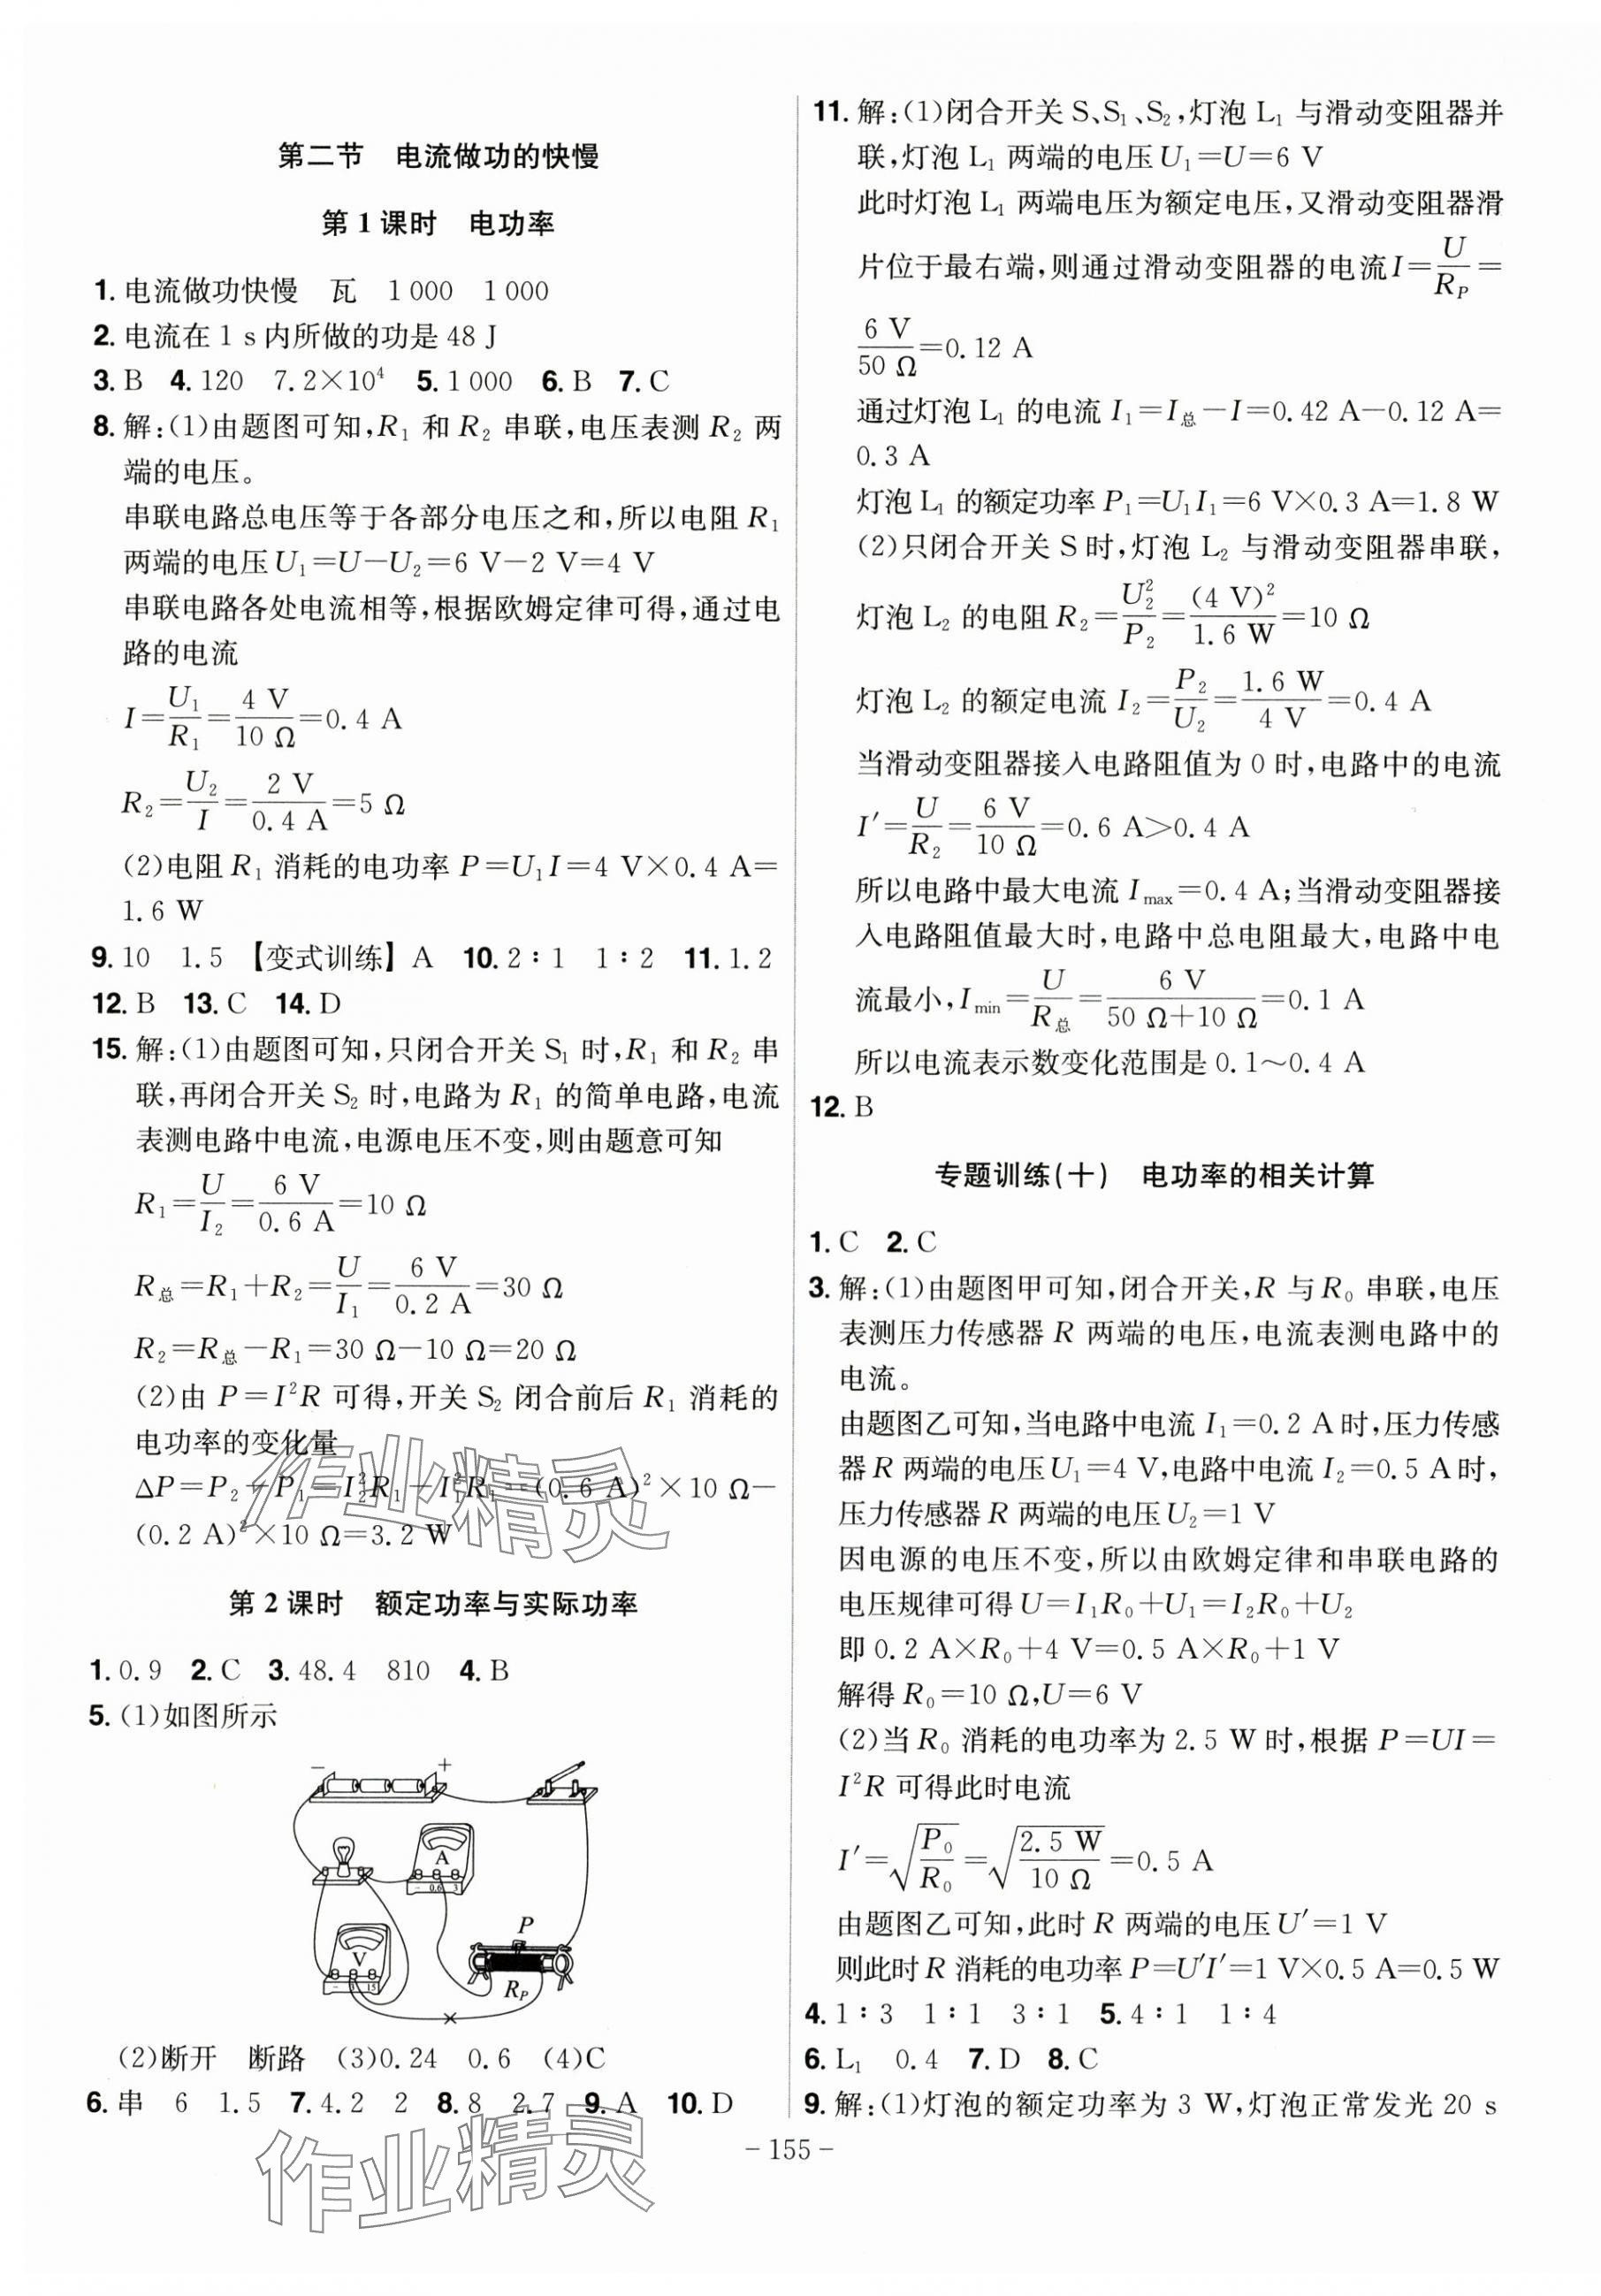 第二节 电流做功的快慢
第1课时 电功率
1. 电流做功快慢 瓦 1 000 1 000
2. 电流在 1 s 内所做的功是 48 J
3. B 4. 120 7.2×10⁴ 5. 1 000 6. B 7. C
8. 解:(1)由题图可知,R₁ 和 R₂ 串联,电压表测 R₂ 两
端的电压。
串联电路总电压等于各部分电压之和,所以电阻 R₁
两端的电压 U₁=U-U₂=6 V-2 V=4 V
串联电路各处电流相等,根据欧姆定律可得,通过电
路的电流
I=U₁/R₁=4 V/10 Ω=0.4 A
R₂=U₂/I=2 V/0.4 A=5 Ω
(2)电阻 R₁ 消耗的电功率 P=U₁I=4 V×0.4 A=
1.6 W
9. 10 1.5 【变式训练】A 10. 2∶1 1∶2 11. 1.2
12. B 13. C 14. D
15. 解:(1)由题图可知,只闭合开关 S₁ 时,R₁ 和 R₂ 串
联,再闭合开关 S₂ 时,电路为 R₁ 的简单电路,电流
表测电路中电流,电源电压不变,则由题意可知
R₁=U/I₂=6 V/0.6 A=10 Ω
R总=R₁+R₂=U/I₁=6 V/0.2 A=30 Ω
R₂=R总-R₁=30 Ω-10 Ω=20 Ω
(2)由 P=I²R 可得,开关 S₂ 闭合前后 R₁ 消耗的
电功率的变化量
ΔP=P₂-P₁=I₂²R₁-I₁²R₁=(0.6 A)²×10 Ω-
(0.2 A)²×10 Ω=3.2 W
第2课时 额定功率与实际功率
1. 0.9 2. C 3. 48.4 810 4. B
5. (1)如图所示
- +
A
- 0.6 3
V
- 3 15
P
R_P
×
(2)断开 断路 (3)0.24 0.6 (4)C
6. 串 6 1.5 7. 4.2 2 8. 8 2.7 9. A 10. D
11. 解:(1)闭合开关 S、S₁、S₂,灯泡 L₁ 与滑动变阻器并
联,灯泡 L₁ 两端的电压 U₁=U=6 V
此时灯泡 L₁ 两端电压为额定电压,又滑动变阻器滑
片位于最右端,则通过滑动变阻器的电流 I=U/R_P=
6 V/50 Ω=0.12 A
通过灯泡 L₁ 的电流 I₁=I总-I=0.42 A-0.12 A=
0.3 A
灯泡 L₁ 的额定功率 P₁=U₁I₁=6 V×0.3 A=1.8 W
(2)只闭合开关 S 时,灯泡 L₂ 与滑动变阻器串联,
灯泡 L₂ 的电阻 R₂=U₂²/P₂=(4 V)²/1.6 W=10 Ω
灯泡 L₂ 的额定电流 I₂=P₂/U₂=1.6 W/4 V=0.4 A
当滑动变阻器接入电路阻值为 0 时,电路中的电流
I′=U/R₂=6 V/10 Ω=0.6 A>0.4 A
所以电路中最大电流 I_max=0.4 A;当滑动变阻器接
入电路阻值最大时,电路中总电阻最大,电路中电
流最小,I_min=U/R总=6 V/(50 Ω+10 Ω)=0.1 A
所以电流表示数变化范围是 0.1~0.4 A
12. B
专题训练(十) 电功率的相关计算
1. C 2. C
3. 解:(1)由题图甲可知,闭合开关,R 与 R₀ 串联,电压
表测压力传感器 R 两端的电压,电流表测电路中的
电流。
由题图乙可知,当电路中电流 I₁=0.2 A 时,压力传感
器 R 两端的电压 U₁=4 V,电路中电流 I₂=0.5 A 时,
压力传感器 R 两端的电压 U₂=1 V
因电源的电压不变,所以由欧姆定律和串联电路的
电压规律可得 U=I₁R₀+U₁=I₂R₀+U₂
即 0.2 A×R₀+4 V=0.5 A×R₀+1 V
解得 R₀=10 Ω,U=6 V
(2)当 R₀ 消耗的电功率为 2.5 W 时,根据 P=UI=
I²R 可得此时电流
I′=√(P₀/R₀)=√(2.5 W/10 Ω)=0.5 A
由题图乙可知,此时 R 两端的电压 U′=1 V
则此时 R 消耗的电功率 P=U′I′=1 V×0.5 A=0.5 W
4. 1∶3 1∶1 3∶1 5. 4∶1 1∶4
6. L₁ 0.4 7. D 8. C
9. 解:(1)灯泡的额定功率为 3 W,灯泡正常发光 20 s
- 155 -
作业精灵
作业精灵